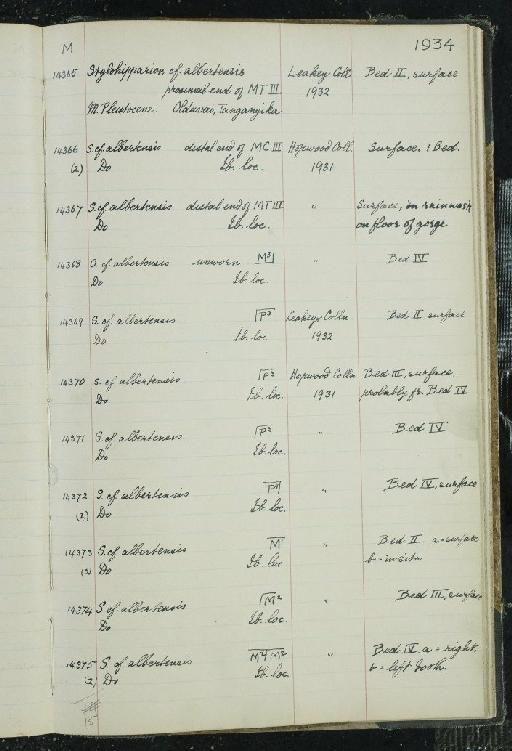 M 1934
14365 Stylohipparion cf albertensis Leakey Coll. Bed II, surface
proximal end of MT III 1932
M. Pleistocene. Olduvai, Tanganyika
14366 S. cf albertensis distal end of MC III Hopwood Coll. Surface, ? Bed.
(2) Do Ib. loc. 1931
14367 S. cf albertensis distal end of MT III " Surface, in rainwash
Do Ib. loc. on floor of gorge.
14368 S. cf albertensis unworn M3 " Bed IV
Do Ib. loc.
14369 S. cf albertensis P3 Leakey Colln Bed II surface
Do Ib. loc. 1932
14370 S. cf albertensis P2 Hopwood Colln Bed III, surface
Do Ib. loc. 1931 probably fr. Bed IV
14371 S. cf albertensis P2 " Bed IV
Do Ib. loc.
14372 S. cf albertensis " Bed IV, surface
(2) Do Ib. loc.
14373 S. cf albertensis M " Bed II a = surface
(2) Do Ib. loc b = in situ
14374 S. cf albertensis M2 " Bed III, surface
Do Ib. loc.
14375 S. cf albertensis " Bed IV a = right,
(2) Do Ib. loc. b = left tooth.
15